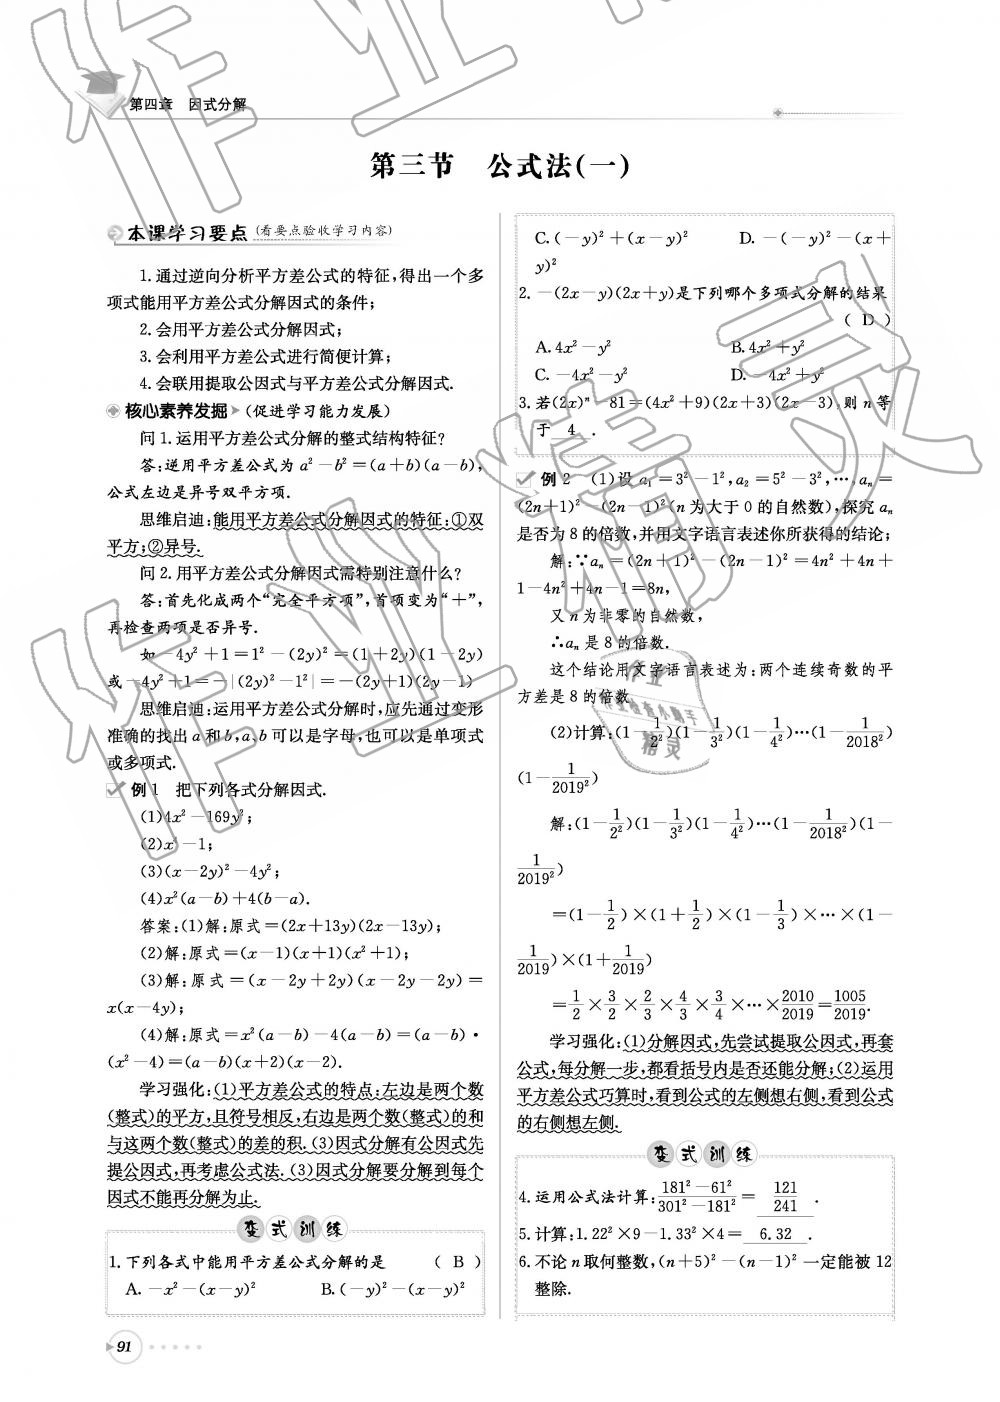 第四章 因式分解
第三节 公式法(一)
本课学习要点(看要点验收学习内容)
1.通过逆向分析平方差公式的特征,得出一个多
项式能用平方差公式分解因式的条件;
2.会用平方差公式分解因式;
3.会利用平方差公式进行简便计算;
4.会联用提取公因式与平方差公式分解因式.
核心素养发掘(促进学习能力发展)
问1.运用平方差公式分解的整式结构特征?
答:逆用平方差公式为a²-b²=(a+b)(a-b),
公式左边是异号双平方项.
思维启迪:能用平方差公式分解因式的特征:①双
平方;②异号.
问2.用平方差公式分解因式需特别注意什么?
答:首先化成两个“完全平方项”,首项变为“+”,
再检查两项是否异号.
如-4y²+1=1²-(2y)²=(1+2y)(1-2y)
或-4y²+1=-|(2y)²-1²|=-(2y+1)(2y-1)
思维启迪:运用平方差公式分解时,应先通过变形
准确的找出a和b,a、b可以是字母,也可以是单项式
或多项式.
例1 把下列各式分解因式.
(1)4x²-169y²;
(2)x⁴-1;
(3)(x-2y)²-4y²;
(4)x²(a-b)+4(b-a).
答案:(1)解:原式=(2x+13y)(2x-13y);
(2)解:原式=(x-1)(x+1)(x²+1);
(3)解:原式=(x-2y+2y)(x-2y-2y)=
x(x-4y);
(4)解:原式=x²(a-b)-4(a-b)=(a-b)·
(x²-4)=(a-b)(x+2)(x-2).
学习强化:(1)平方差公式的特点:左边是两个数
(整式)的平方,且符号相反,右边是两个数(整式)的和
与这两个数(整式)的差的积.(3)因式分解有公因式先
提公因式,再考虑公式法.(3)因式分解要分解到每个
因式不能再分解为止.
变式训练
1.下列各式中能用平方差公式分解的是 ( B )
A.-x²-(x-y)² B.(-y)²-(x-y)²
C.(-y)²+(x-y)² D.-(-y)²-(x+
y)²
2.-(2x-y)(2x+y)是下列哪个多项式分解的结果
( D )
A.4x²-y² B.4x²+y²
C.-4x²-y² D.-4x²+y²
3.若(2x)ⁿ-81=(4x²+9)(2x+3)(2x-3),则n等
于 4 .
例2 (1)设a₁=3²-1²,a₂=5²-3²,…,aₙ=
(2n+1)²-(2n-1)²(n为大于0的自然数),探究aₙ
是否为8的倍数,并用文字语言表述你所获得的结论;
解:∵aₙ=(2n+1)²-(2n-1)²=4n²+4n+
1-4n²+4n-1=8n,
又n为非零的自然数,
∴aₙ是8的倍数.
这个结论用文字语言表述为:两个连续奇数的平
方差是8的倍数
(2)计算:(1-1/2²)(1-1/3²)(1-1/4²)…(1-1/2018²)
(1-1/2019²)
解:(1-1/2²)(1-1/3²)(1-1/4²)…(1-1/2018²)(1-
1/2019²)
=(1-1/2)×(1+1/2)×(1-1/3)×…×(1-
1/2019)×(1+1/2019)
=1/2×3/2×2/3×4/3×3/4×…×2010/2019=1005/2019.
学习强化:(1)分解因式,先尝试提取公因式,再套
公式,每分解一步,都看括号内是否还能分解;(2)运用
平方差公式巧算时,看到公式的左侧想右侧,看到公式
的右侧想左侧.
变式训练
4.运用公式法计算:181²-61²/301²-181²= 121/241 .
5.计算:1.22²×9-1.33²×4= 6.32 .
6.不论n取何整数,(n+5)²-(n-1)²一定能被12
整除.
91
作业精灵